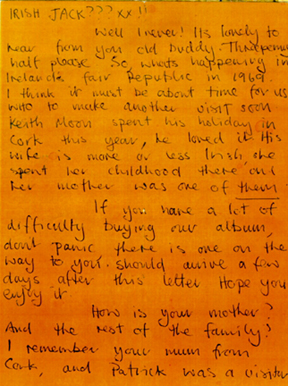 IRISH JACK??? xx !!
Well I never! Its lonely to
hear from you old buddy. Threepence
half please. So, whats happening in
Irelands fair Republic in 1969
I think it must be about time for us
WHO to make another visit soon
Keith Moon spent his holiday in
Cork this year, he loved it. His
wife is more or less Irish, she
spent her childhood there and
her mother was one of them.
If you have a lot of
difficulty buying our album,
dont panic there is one on the
way to you. should arrive a few
days after this letter Hope you
enjoy it
How is your mother?
And the rest of the family?
I remember your mum from
Cork, and Patrick was a visitor